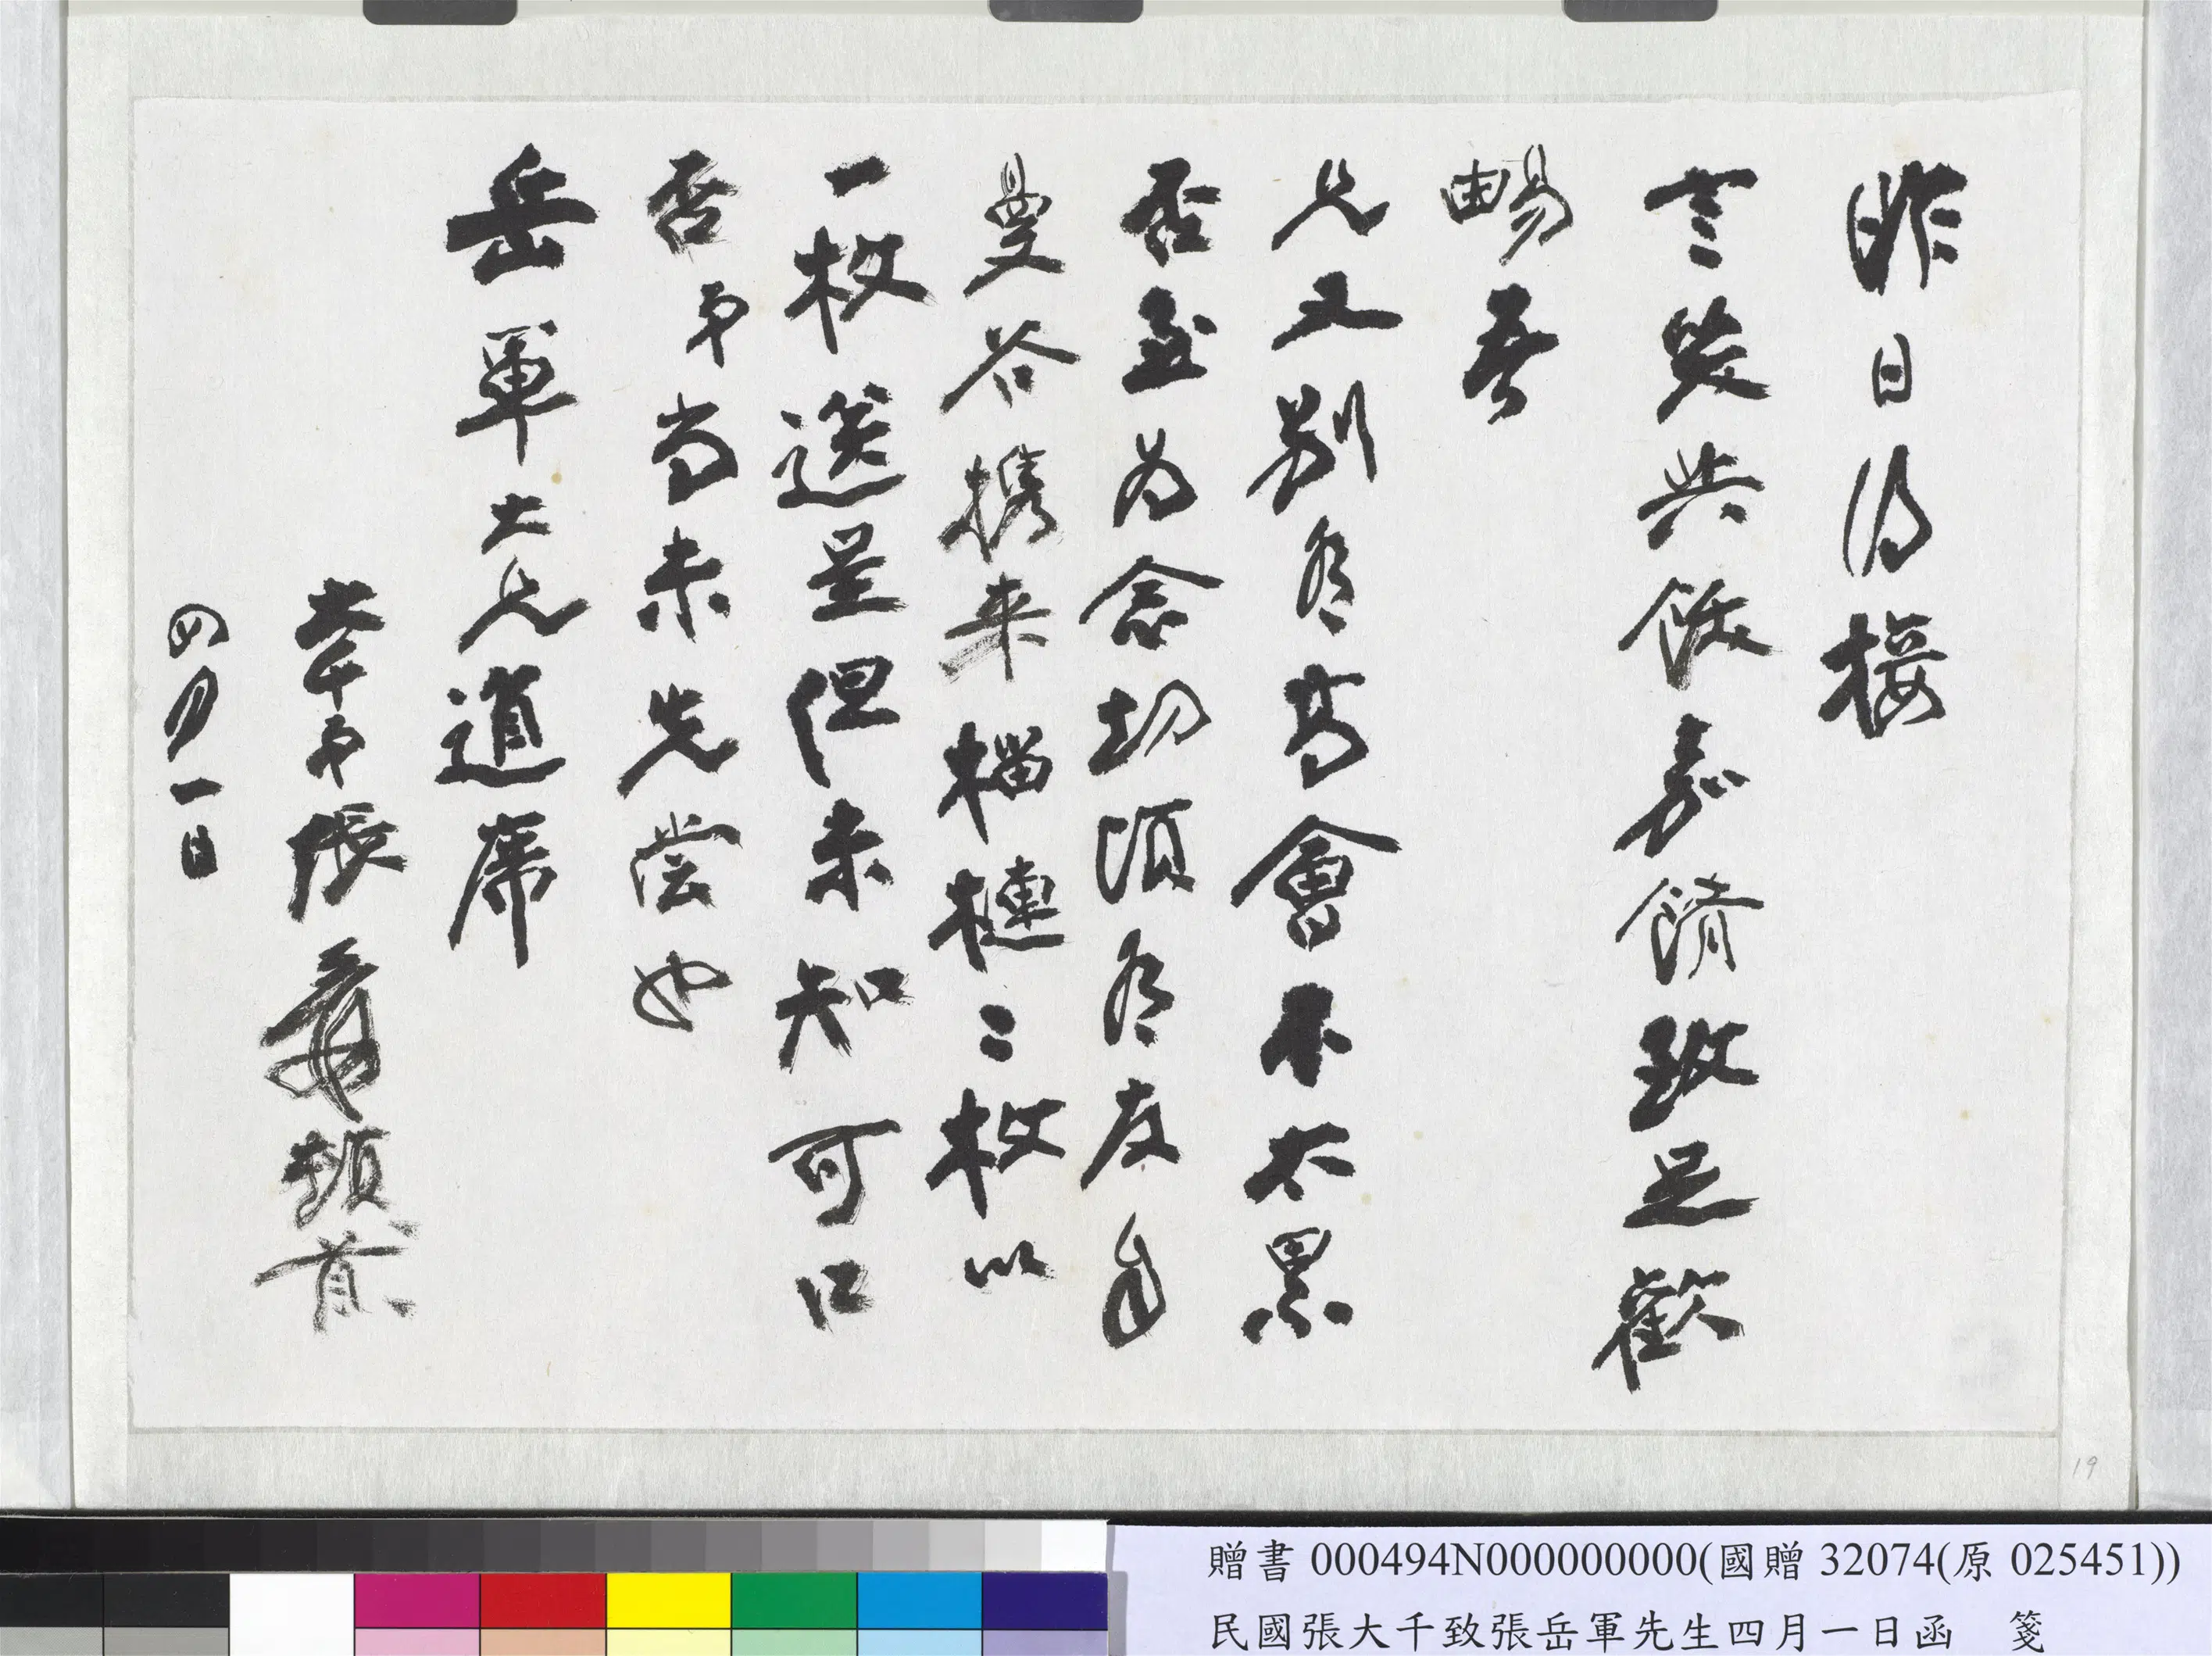 昨日得接
言笑共飯嘉餚致足歡
暢吾
兄又別有高會不太累
否至為念切頃有友自
曼谷携来榴槤二枚以
一枚送呈但未知可口
否弟尚未先嘗也
岳軍大兄道席
大千弟張爰頓首
四月一日
19
贈書000494N000000000(國贈32074(原025451))
民國張大千致張岳軍先生四月一日函 箋